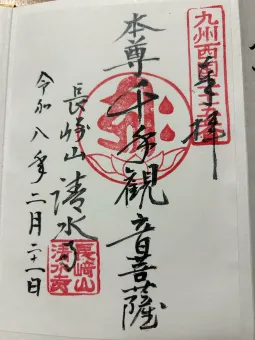 奉拝
本尊千手観音菩薩
長崎山 清水寺
令和八年二月二十一日
九州西国
長崎山
清水寺